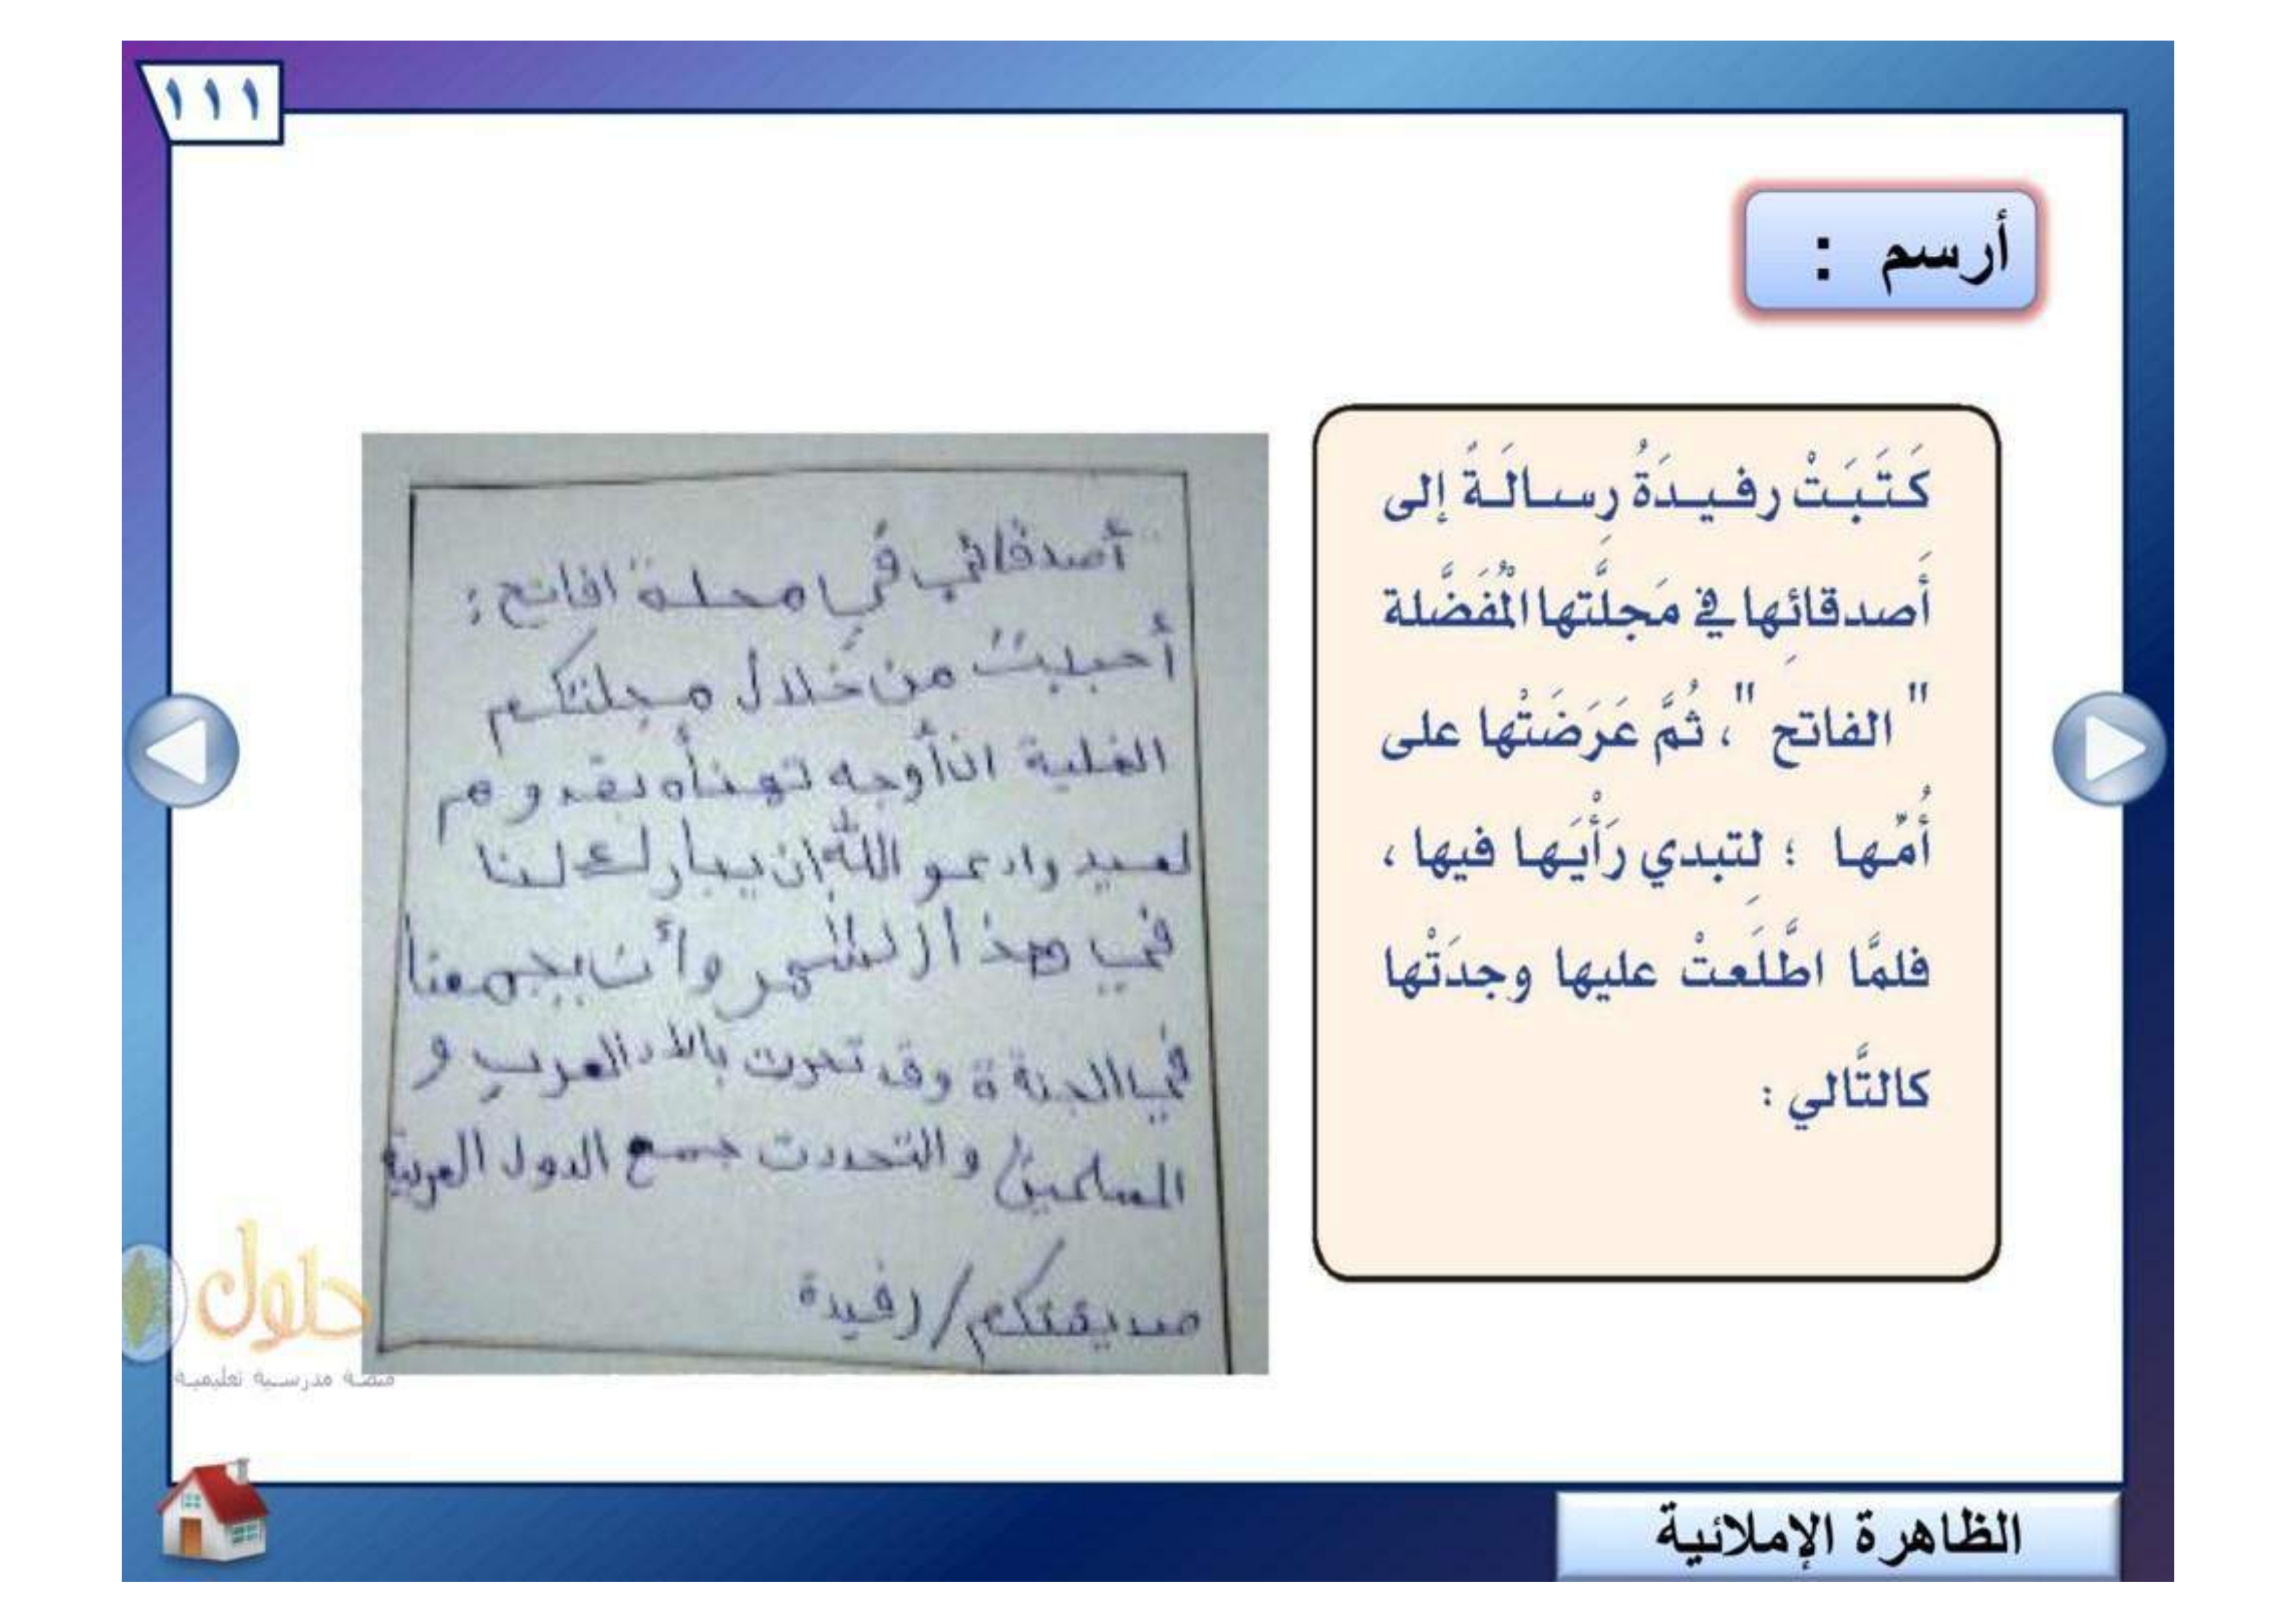 ١١١
أرسم :
كَتَبَتْ رفيدَةُ رِسالَةً إلى
أَصدقائِها في مَجلَّتها الْمُفَضَّلة
" الفاتح "، ثُمَّ عَرَضَتْها على
أُمّها ؛ لِتبدي رَأْيَها فيها ،
فلمَّا اطَّلَعتْ عليها وجدَتْها
كالتَّالي :
أصدقائي في مجلة "افاتح :
أحببت من خلال مجلتكم
الغلية ان أوجه تهنأه بقدوم
لعيد وادعو الله ان يبارك لنا
في هذا الشهر وأن يجمعنا
في الجنة وقد تحرت بالاد العرب و
المسلمين والتحدت جمع الدول العربية
صديقتكم/رفيدة
حلول
منصة مدرسية تعليمية
الظاهرة الإملائية